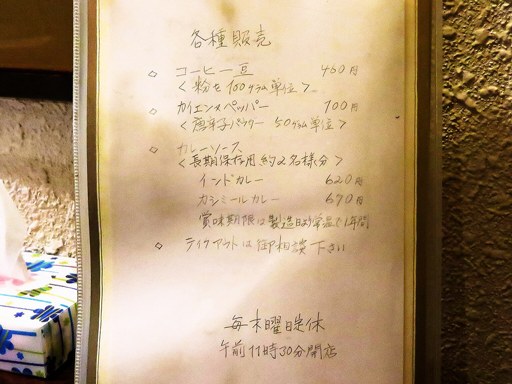 各種販売
◇ コーヒー豆 460円
＜粉も100グラム単位＞
◇ カイエンヌペッパー 100円
＜唐辛子パウダー 50グラム単位＞
◇ カレーソース
＜長期保存用 約2名様分＞
インドカレー 620円
カシミールカレー 670円
賞味期限は製造日より常温で1年間
◇ テイクアウトは御相談下さい
毎木曜日定休
午前11時30分開店